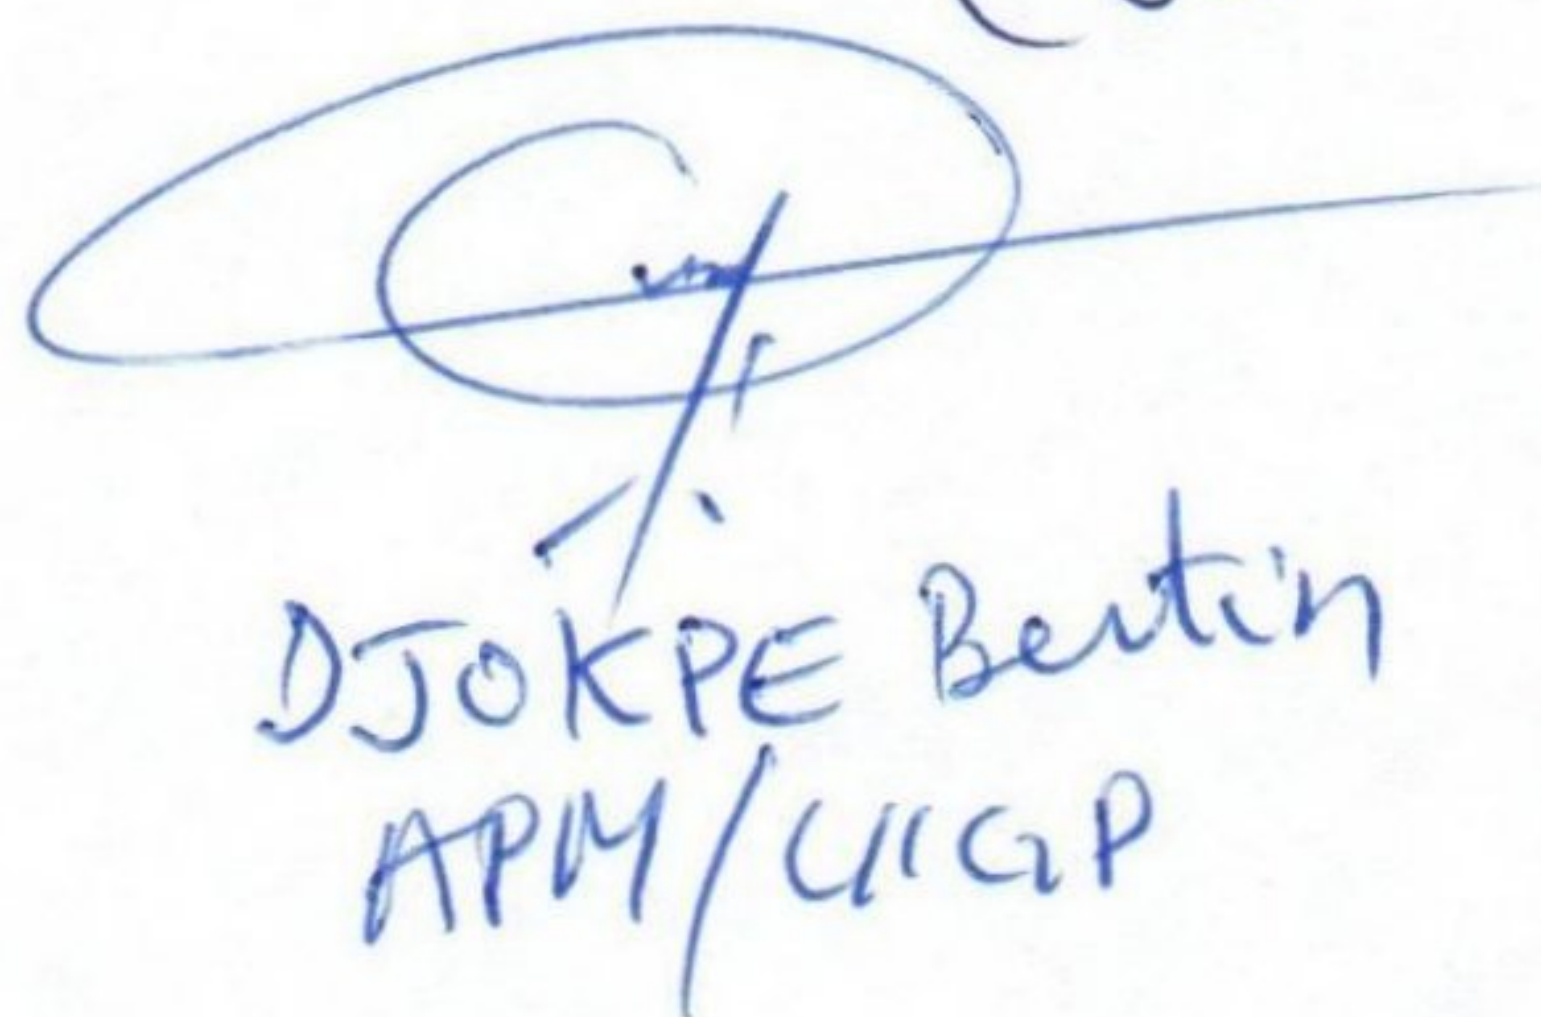 DJOKPE Bertin
APM/UIGP